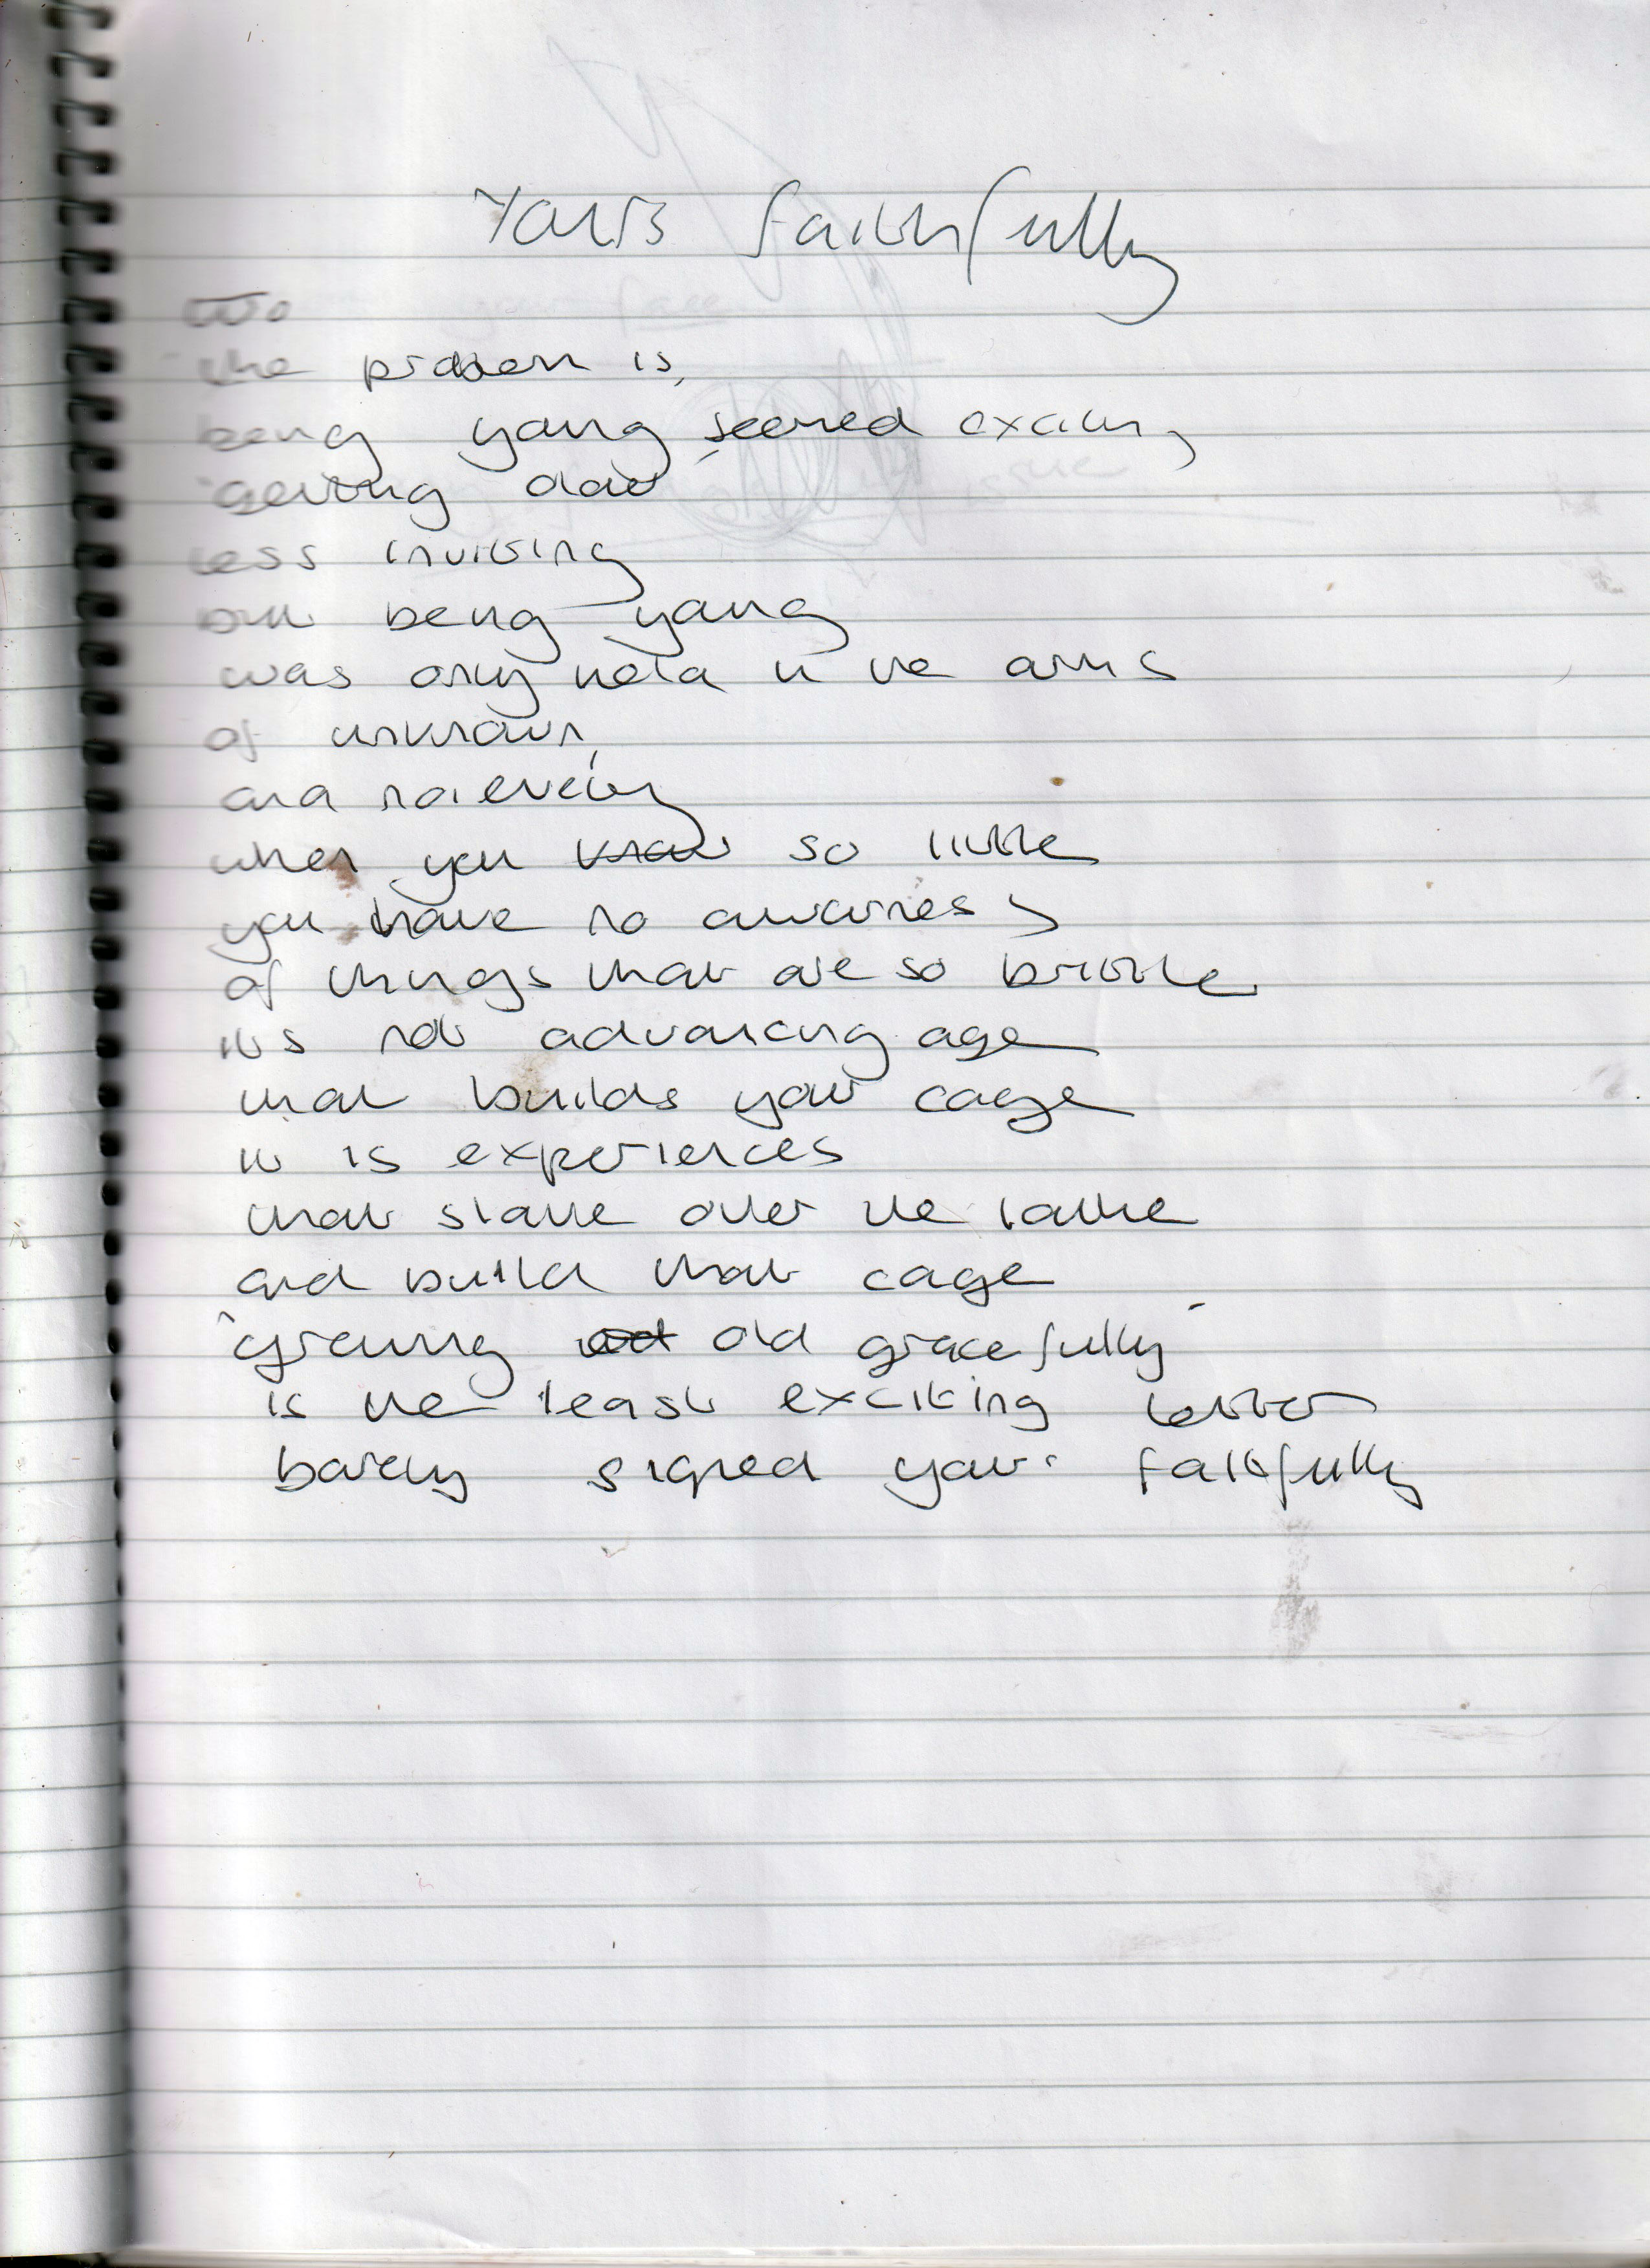 Yours faithfully
the problem is,
being young seemed exciting
getting old
less inviting
but being young
was only held in the arms
of unknown,
and naievity
when you know so little
you have no awarness
of things that are so brittle
its not advancing age
that builds your cage
it is experiences
that slave over the lathe
and build that cage
"growing old gracefully"
is the least exciting letter
barely signed yours faithfully